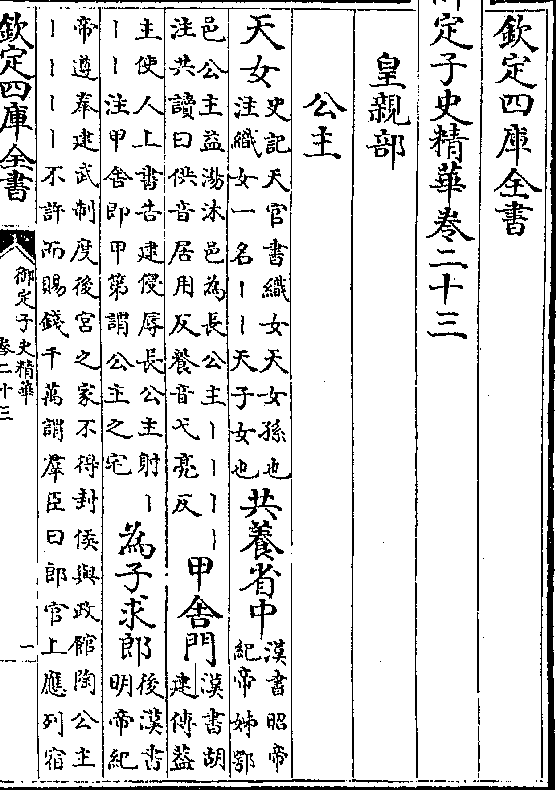 欽定四庫全書
御定子史精華卷二十三
皇親部
公主
天女史記天官書織女天女孫也
注織女一名丨丨天子女也
共養省中漢書昭帝
紀帝姊鄂
邑公主益湯沐邑為長公主丨丨丨丨
注共讀曰供音居用反養音弋亮反
甲舍門漢書胡
建傳蓋
主使人上書告建侵辱長公主射丨
丨丨注甲舍即甲第謂公主之宅
為子求郎後漢書
明帝紀
帝遵奉建武制度後宮之家不得封侯與政館陶公主
丨丨丨丨不許而賜錢千萬謂羣臣曰郎官上應列宿
欽定四庫全書
御定子史精華
卷二十三
一